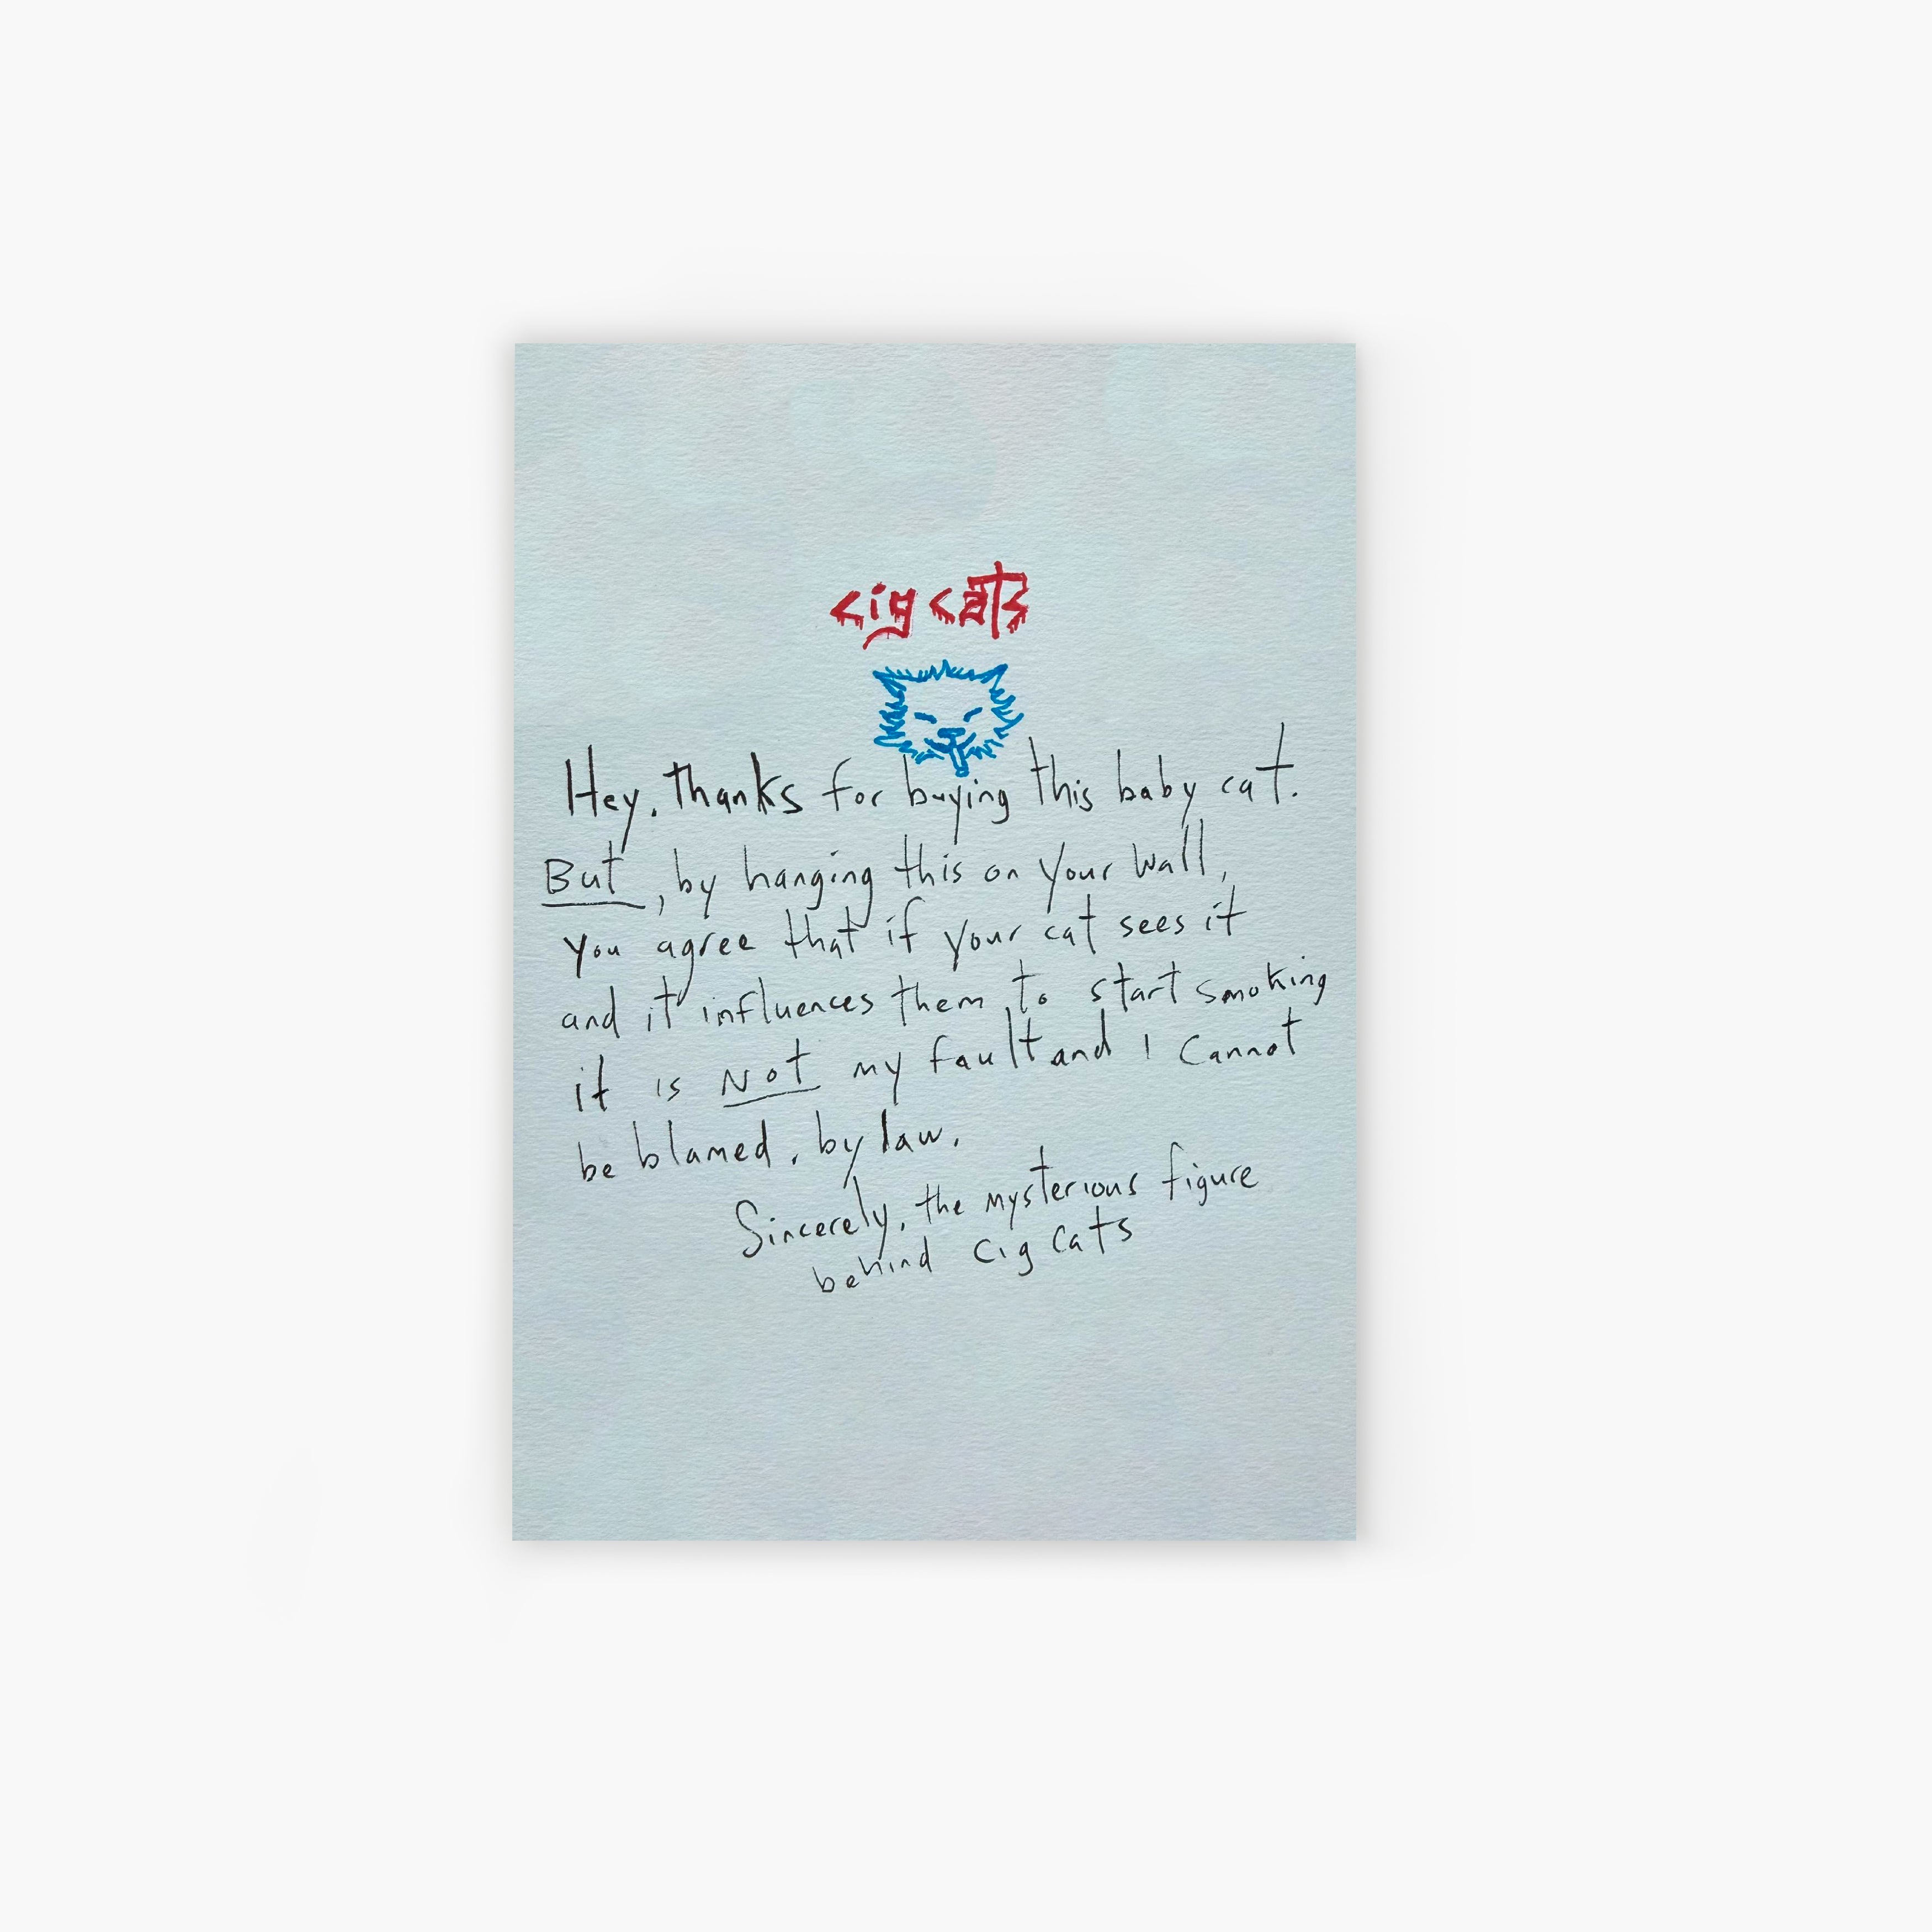 cig cats
Hey, thanks for buying this baby cat.
But, by hanging this on your wall,
you agree that if your cat sees it
and it influences them to start smoking
it is NOT my fault and I cannot
be blamed, by law.
Sincerely, the mysterious figure
behind cig cats